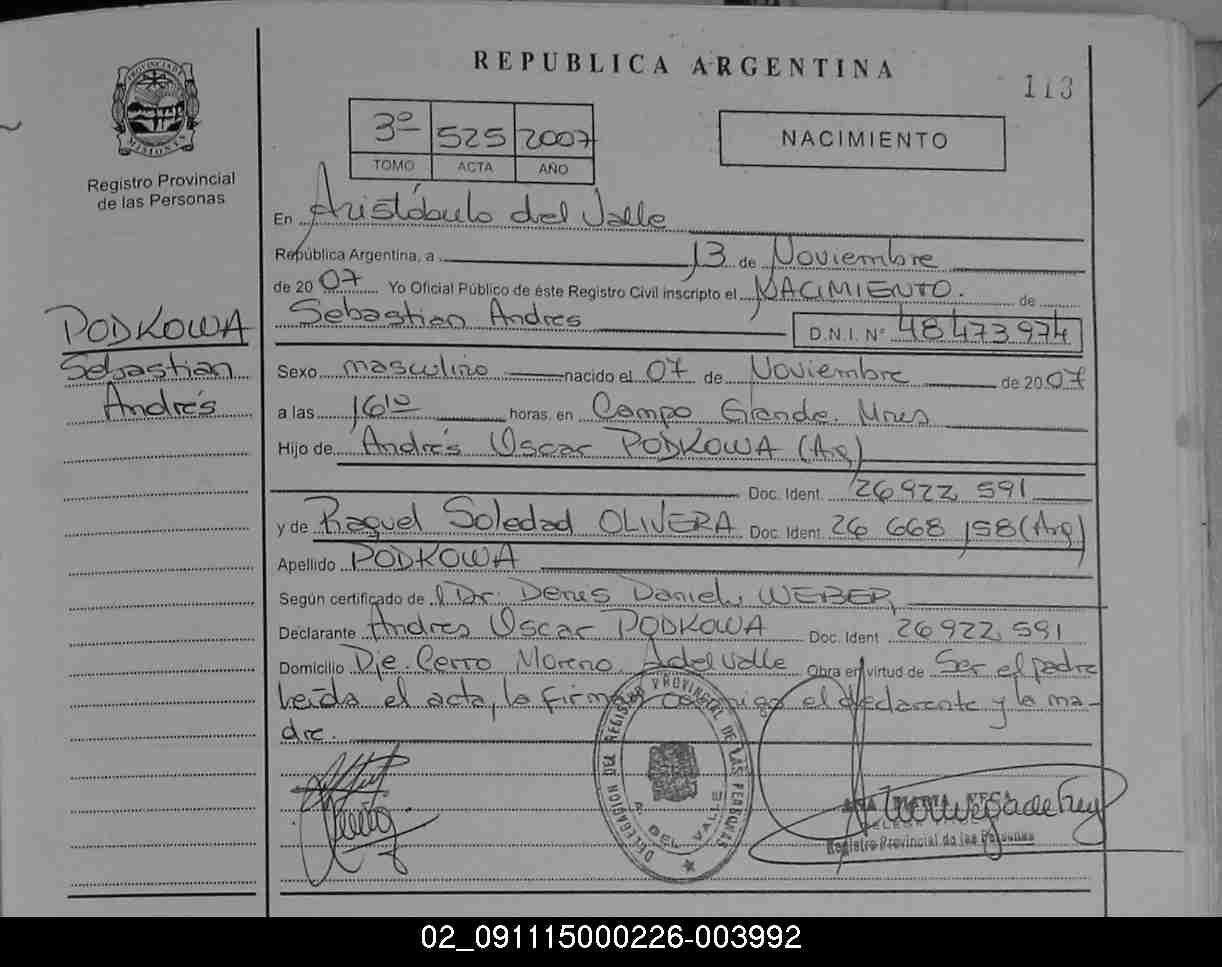 REPUBLICA ARGENTINA
113
PROVINCIA DE
MISIONES
Registro Provincial
de las Personas
3º 525 2007
TOMO ACTA AÑO
NACIMIENTO
En Aristóbulo del Valle
República Argentina, a 13 de Noviembre
de 2007 Yo Oficial Público de éste Registro Civil inscripto el NACIMIENTO. de
Sebastian Andres D.N.I. Nº 48473974
PODKOWA
Sebastian
Andrés
Sexo masculino nacido el 07 de Noviembre de 2007
a las 16 10 horas. en Campo Grande. Mnes
Hijo de Andrés Oscar PODKOWA (Arg)
Doc. Ident. 26 922 591
y de Raquel Soledad OLIVERA Doc. Ident. 26 668 158 (Arg)
Apellido PODKOWA
Según certificado de l Dr. Denis Daniel, WEBER,
Declarante Andres Oscar PODKOWA Doc. Ident 26 922 591
Domicilio Pje. Cerro Moreno. A del Valle Obra en virtud de Ser el padre
Leída el acta, la firma conmigo el declarante y la ma-
dre.
DELEGACION DEL REGISTRO PROVINCIAL DE LAS PERSONAS
A. DEL VALLE
Registro Provincial de las Personas
02_091115000226-003992